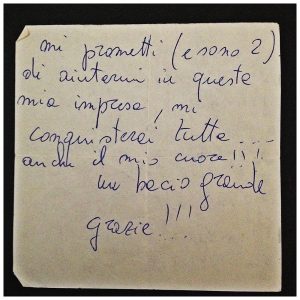 mi prometti (e sono 2)
di aiutarmi in queste
mia impresa, mi
conquisterai tutta ....
anche il mio cuore!!!!
un bacio grande
grazie!!!